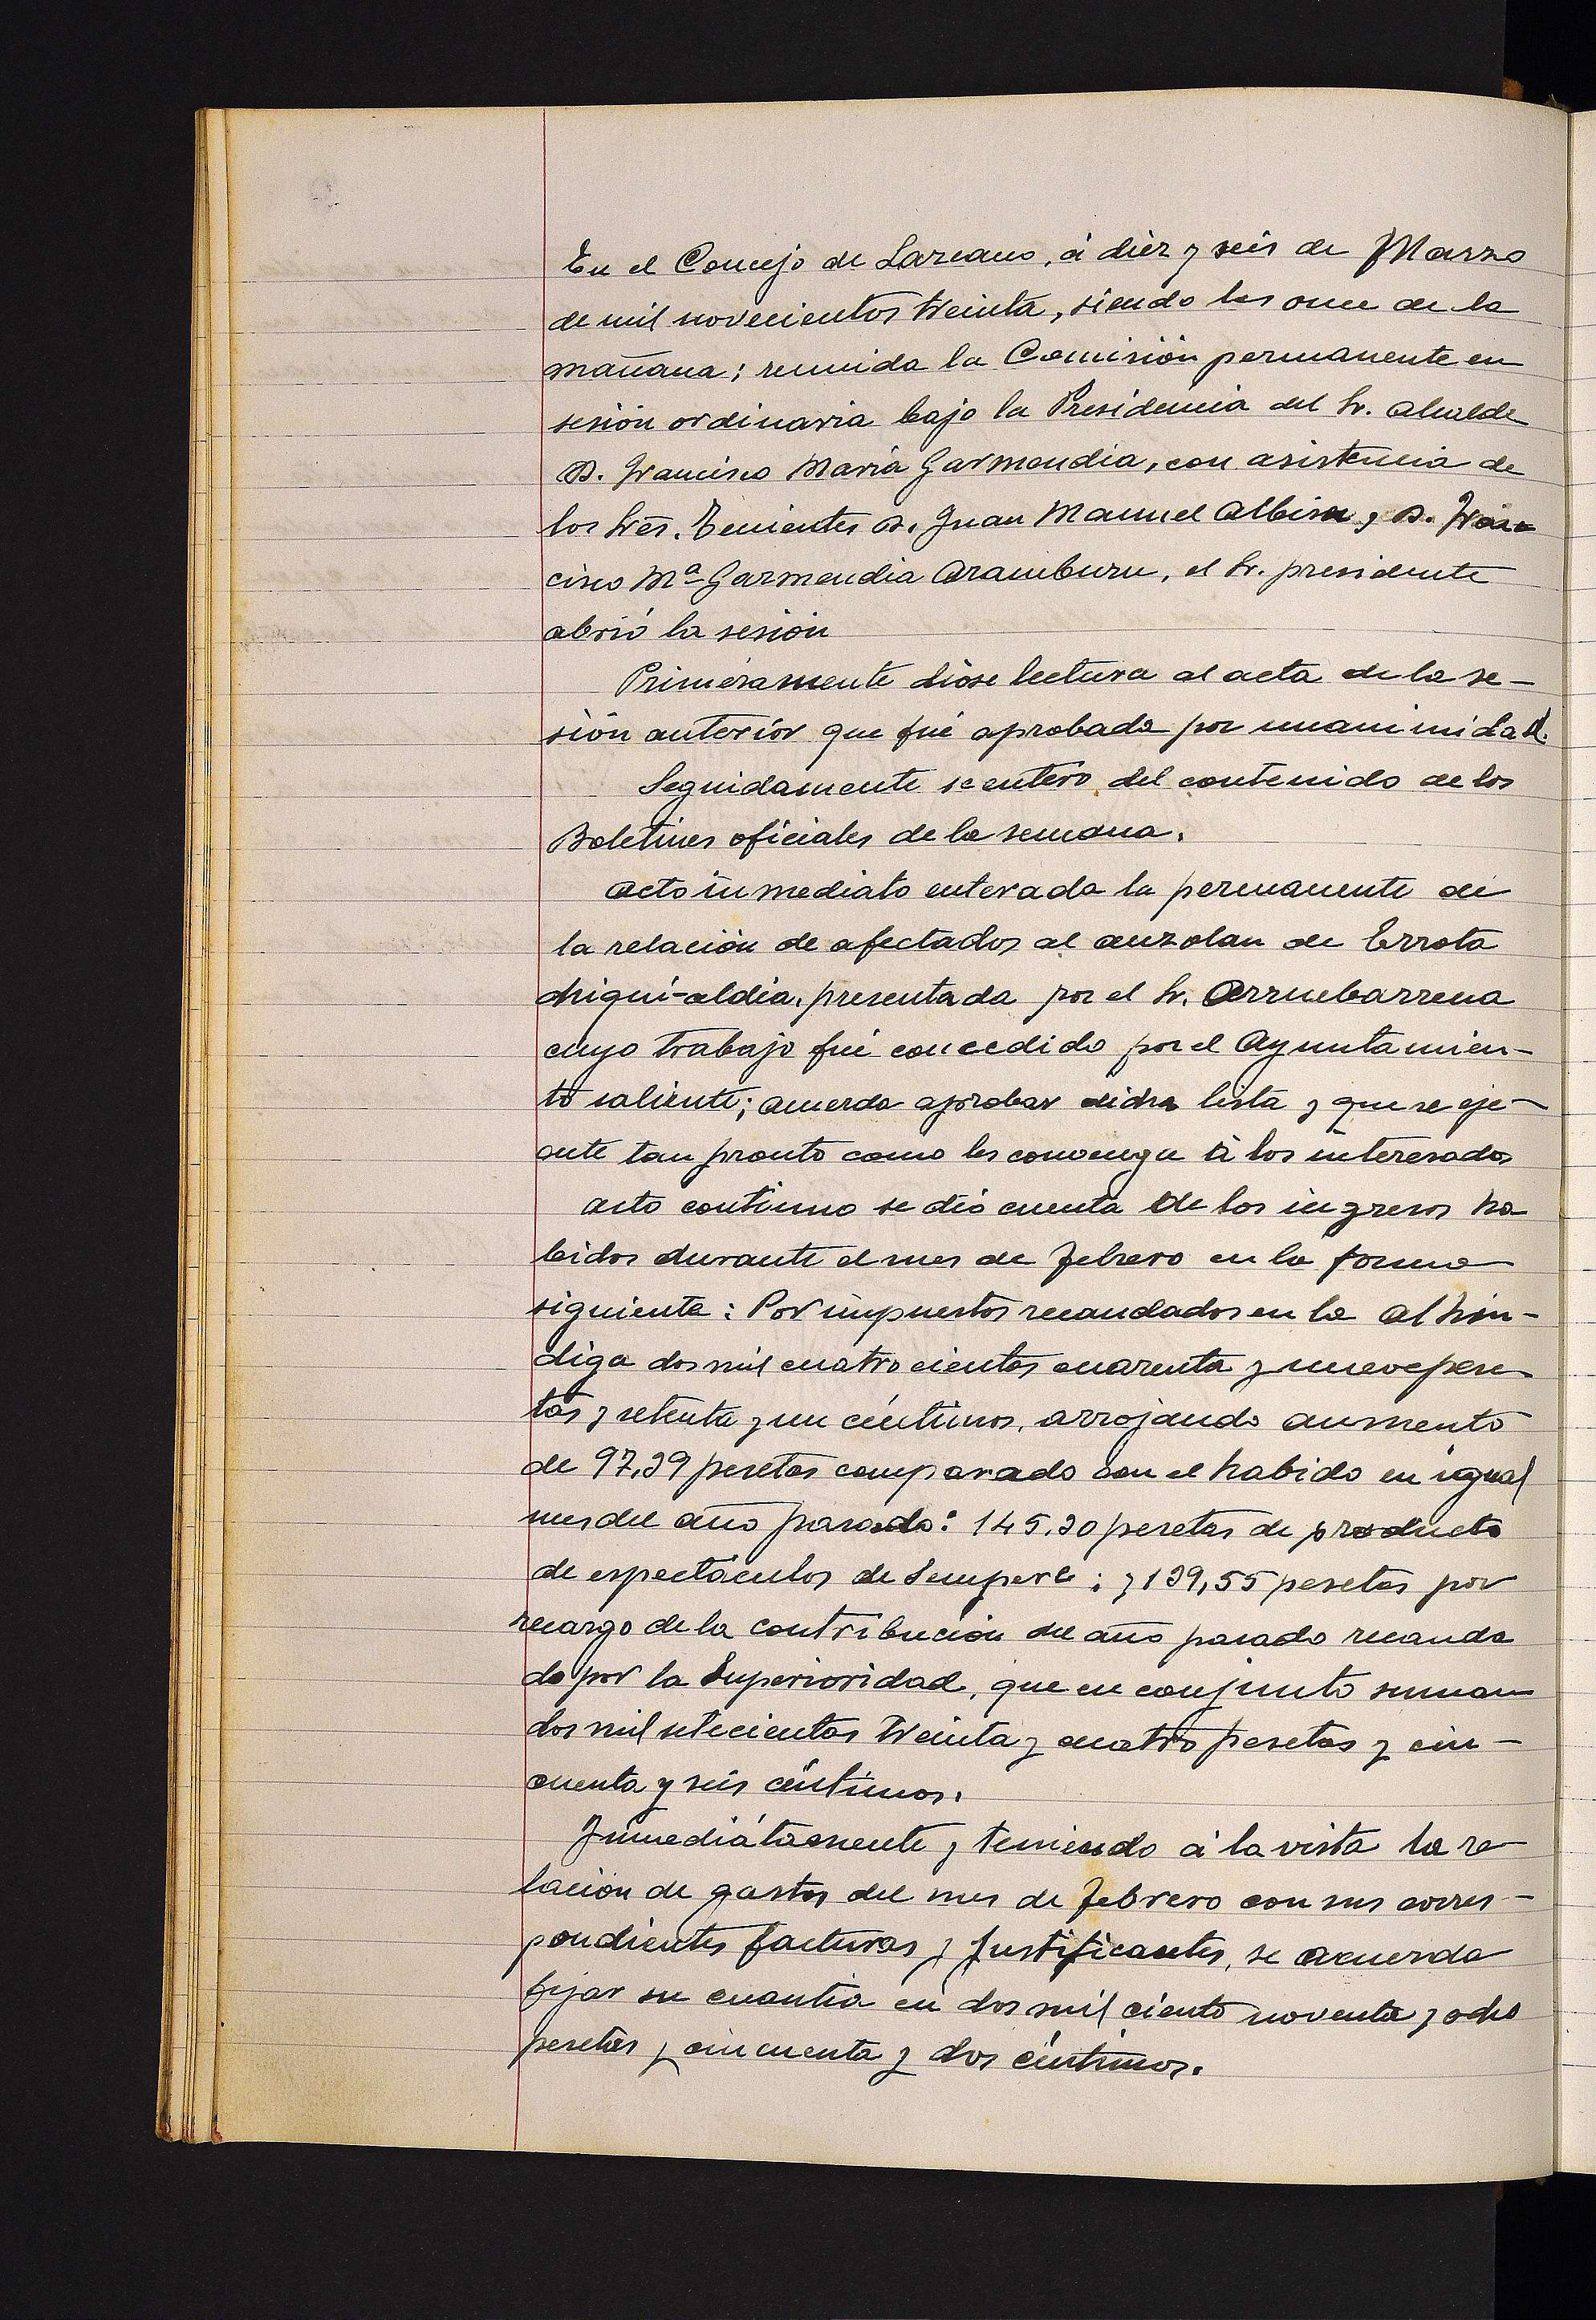 En el Concejo de Lazcano, á diez y seis de Marzo
de mil novecientos treinta, siendo las once de la
mañana; reunida la Comisión permanente en
sesión ordinaria bajo la Presidencia del Sr. Alcalde
D. Francisco María Garmendia, con asistencia de
los Sres. Tenientes D. Juan Manuel Albisu y D. Fran
cisco Mª Garmendia Aramburu, el Sr. presidente
abrió la sesión
Primeramente dióse lectura al acta de la se-
sión anterior que fué aprobada por unanimidad.
Seguidamente se entero del contenido de los
Boletines oficiales de la semana.
Acto inmediato enterada la permanente de
la relación de afectados al auzolan de Errota
chiqui-aldia, presentada por el Sr. Arruebarrena
cuyo trabajo fué concedido por el Ayuntamien-
to saliente; acuerda aprobar dicha lista y que se eje-
cute tan pronto como les convenga á los interesados
Acto continuo se dió cuenta de los ingresos ha
bidos durante el mes de Febrero en la forma
siguiente: Por impuestos recaudados en la alhón-
diga dos mil cuatrocientas cuarenta y nueve pese
tas y setenta y un céntimos, arrojando aumento
de 97,39 pesetas comparado con el habido en igual
mes del año pasado: 145,30 pesetas de producto
de espectáculos de : y 139,55 pesetas por
recargo de la contribución del año pasado recauda
do por la Superioridad, que en conjunto suman
dos mil setecientas treinta y cuatro pesetas y cin-
cuenta y seis céntimos.
Inmediátamente y teniendo á la vista la re
lación de gastos del mes de Febrero con sus corres-
pondientes facturas y Justificantes, se acuerda
fijar su cuantía en dos mil ciento noventa y ocho
pesetas y cincuenta y dos céntimos.